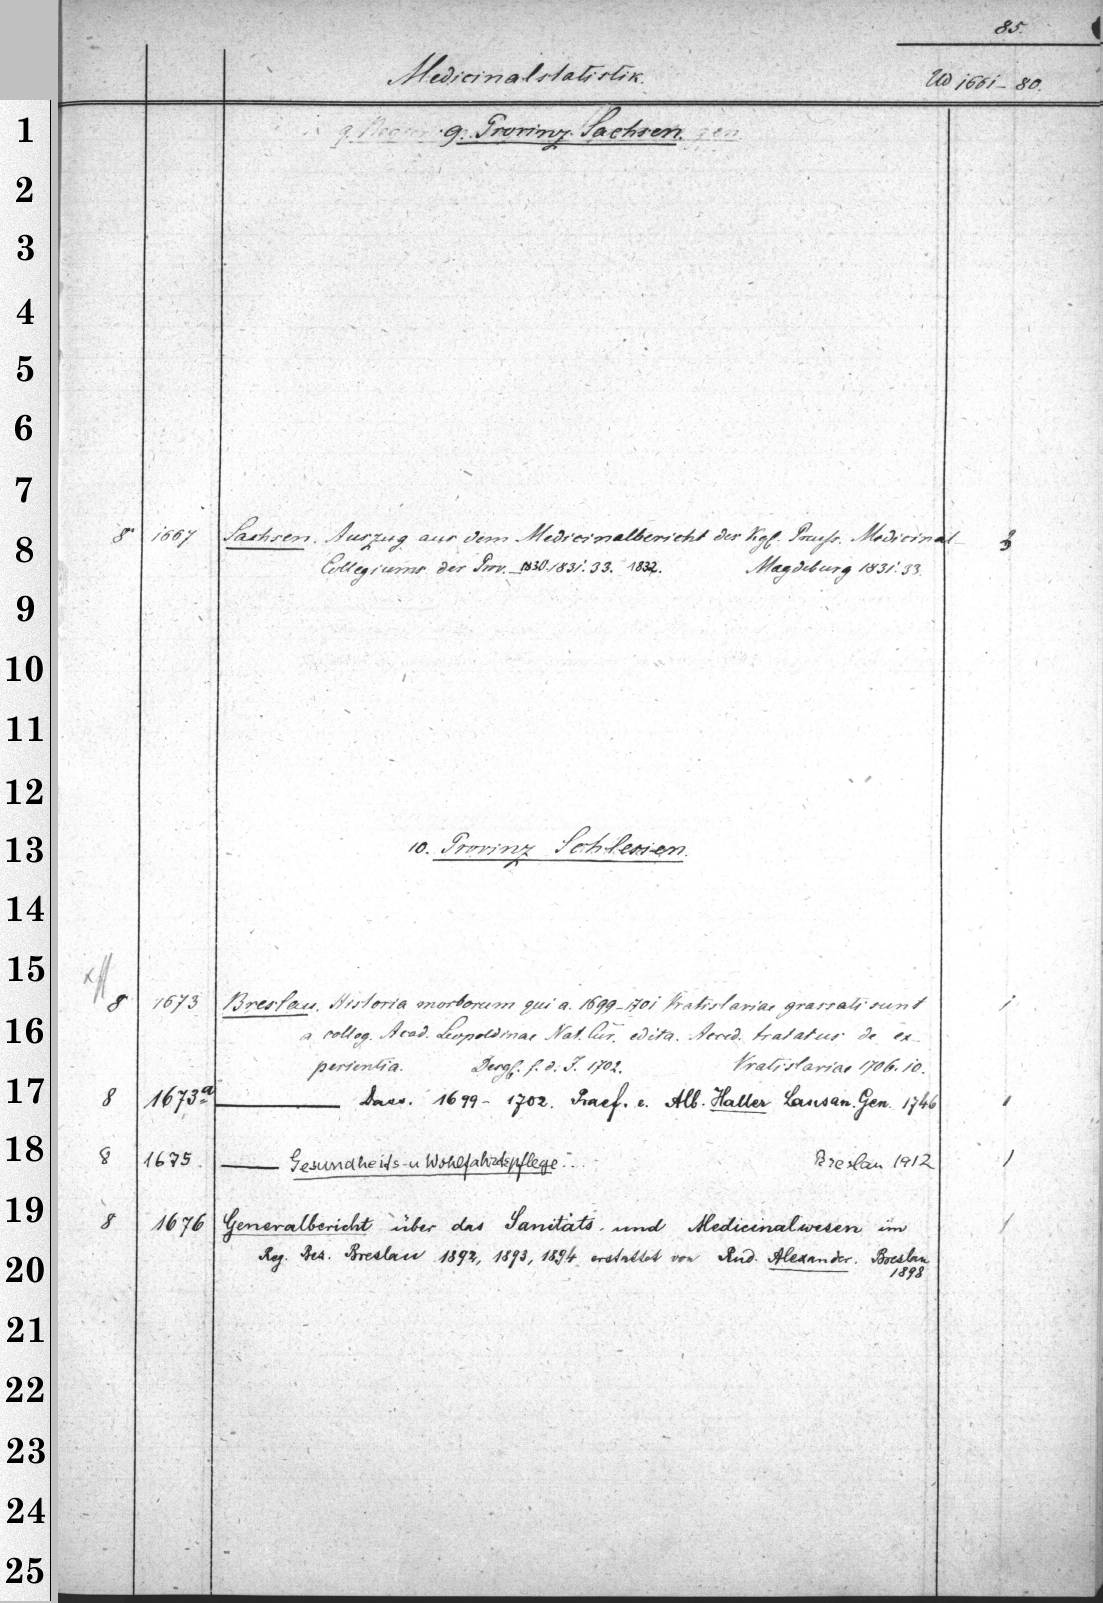 85.
Medicinalstatistik. Ud 1661-80.
1 9. Provinz Sachsen.
2
3
4
5
6
7
8 8° 1667 Sachsen. Auszug aus dem Medicinalbericht des Kgl. Preuss. Medicinal- 3
Collegiums der Prov. 1830.1831.33. 1832. Magdeburg 1831.33.
9
10
11
12
13 10. Provinz Schlesien.
14
15
8 1673 Breslau. Historia morborum qui a. 1699-1701 Vratislaviae grassati sunt 1
16 a colleg. Acad. Leopoldinae Nat. Cur. edita. Acced. tratatus de ex-
perientia. Desgl. f. d. J. 1702. Vratislaviae 1706.10.
17 8 1673a Dass. 1699-1702. Praef. e. Alb. Haller Lausan. Gen. 1746 1
18 8 1675. Gesundheits- u Wohlfahrtspflege Breslau 1912 1
19 8 1676 Generalbericht über das Sanitäts- und Medicinalwesen im 1
20 Reg. Bez. Breslau 1892, 1893, 1894 erstattet von Rud. Alexander. Breslau
1898
21
22
23
24
25